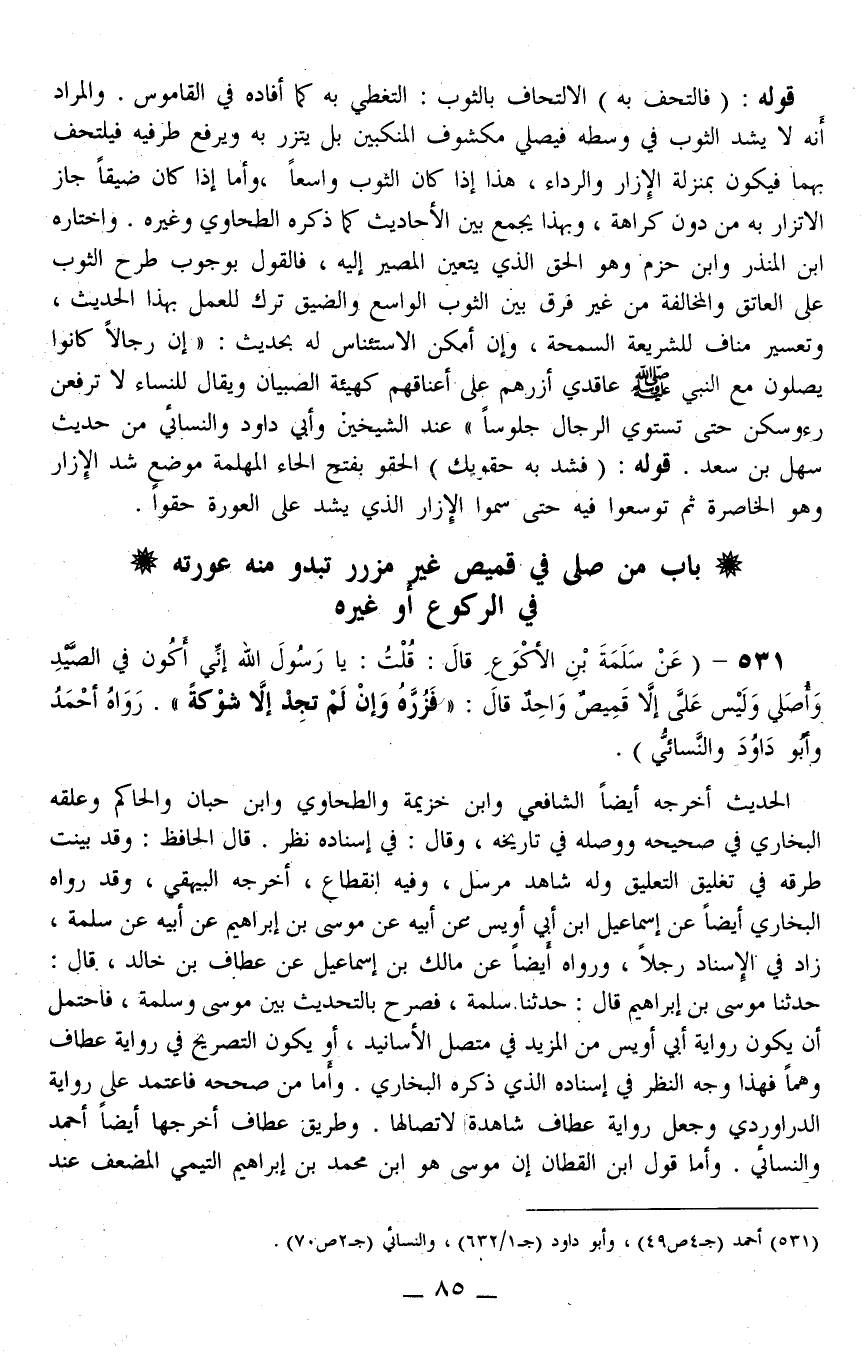 قوله : ( فالتحف به ) الالتحاف بالثوب : التغطي به كما أفاده في القاموس . والمراد
أنه لا يشد الثوب في وسطه فيصلي مكشوف المنكبين بل يتزر به ويرفع طرفيه فيلتحف
بهما فيكون بمنزلة الإزار والرداء ، هذا إذا كان الثوب واسعاً ،وأما إذا كان ضيقاً جاز
الاتزار به من دون كراهة ، وبهذا يجمع بين الأحاديث كما ذكره الطحاوي وغيره . واختاره
ابن المنذر وابن حزم وهو الحق الذي يتعين المصير إليه ، فالقول بوجوب طرح الثوب
على العاتق والمخالفة من غير فرق بين الثوب الواسع والضيق ترك للعمل بهذا الحديث ،
وتعسير مناف للشريعة السمحة ، وإن أمكن الاستئناس له بحديث : « إن رجالاً كانوا
يصلون مع النبي ﷺ عاقدي أزرهم على أعناقهم كهيئة الصبيان ويقال للنساء لا ترفعن
رءوسكن حتى تستوي الرجال جلوساً » عند الشيخين وأبي داود والنسائي من حديث
سهل بن سعد . قوله : ( فشد به حقويك ) الحقو بفتح الحاء المهملة موضع شد الإزار
وهو الخاصرة ثم توسعوا فيه حتى سموا الإزار الذي يشد على العورة حقواً .
✵ باب من صلى في قميص غير مزرر تبدو منه عورته ✵
في الركوع أو غيره
٥٣١ – ( عَنْ سَلَمَةَ بْنِ الأكْوَعِ قالَ : قُلْتُ : يا رَسُولَ الله إنِّي أَكُون في الصَّيْدِ
وَأُصَلي وَلَيْس عَلَىَّ إلَّا قَمِيصٌ وَاحِدٌ قالَ : « فَزُرَّهُ وَإنْ لَمْ تجِدْ إلَّا شوْكةً » . رَوَاهُ أحْمَدُ
وأبُو دَاوُدَ والنَّسائيُّ ) .
الحديث أخرجه أيضاً الشافعي وابن خزيمة والطحاوي وابن حبان والحاكم وعلقه
البخاري في صحيحه ووصله في تاريخه ، وقال : في إسناده نظر . قال الحافظ : وقد بينت
طرقه في تغليق التعليق وله شاهد مرسل ، وفيه انقطاع ، أخرجه البيهقي ، وقد رواه
البخاري أيضاً عن إسماعيل ابن أبي أويس عن أبيه عن موسى بن إبراهيم عن أبيه عن سلمة ،
زاد في الإسناد رجلاً ، ورواه أيضاً عن مالك بن إسماعيل عن عطاف بن خالد ، قال :
حدثنا موسى بن إبراهيم قال : حدثنا سلمة ، فصرح بالتحديث بين موسى وسلمة ، فاحتمل
أن يكون رواية أبي أويس من المزيد في متصل الأسانيد ، أو يكون التصريح في رواية عطاف
وهماً فهذا وجه النظر في إسناده الذي ذكره البخاري . وأما من صححه فاعتمد على رواية
الدراوردي وجعل رواية عطاف شاهدة لاتصالها . وطريق عطاف أخرجها أيضاً أحمد
والنسائي . وأما قول ابن القطان إن موسى هو ابن محمد بن إبراهيم التيمي المضعف عند
(٥٣١) أحمد (جـ٤ص٤٩) ، وأبو داود (جـ٦٣٢/١) ، والنسائي (جـ٢ص٧٠) .
ــ ٨٥ ــ